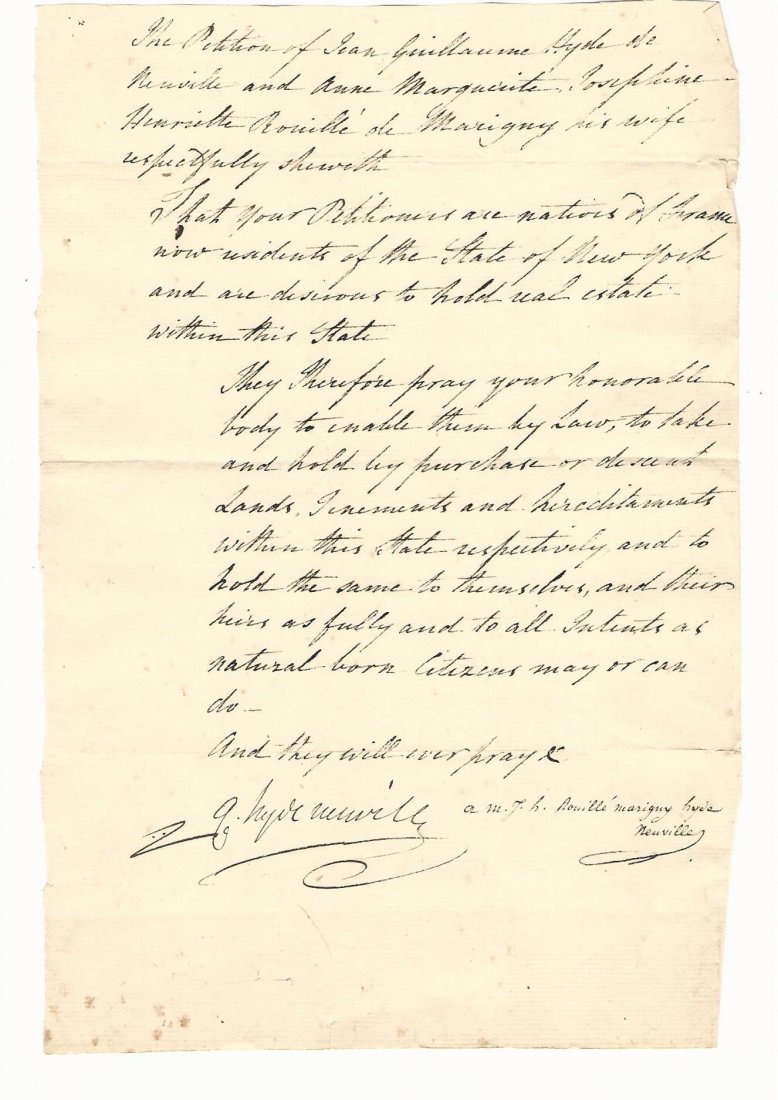 The Petition of Jean Guillaume Hyde de
Neuville and Anne Marguerite Josephine
Henriette Rouillé de Marigny his wife
respectfully sheweth
That your Petitioners are natives of France
now residents of the State of New York
and are desirous to hold real estate
within this State
They Therefore pray your honorable
body to enable them by Law, to take
and hold by purchase or descent
Lands, Tenements and hereditaments
within this State respectively and to
hold the same to themselves, and their
heirs as fully and to all Intents as
natural born Citizens may or can
do –
And they will ever pray &
G. hyde neuville
a m. J. h. Rouillé marigny hyde
Neuville